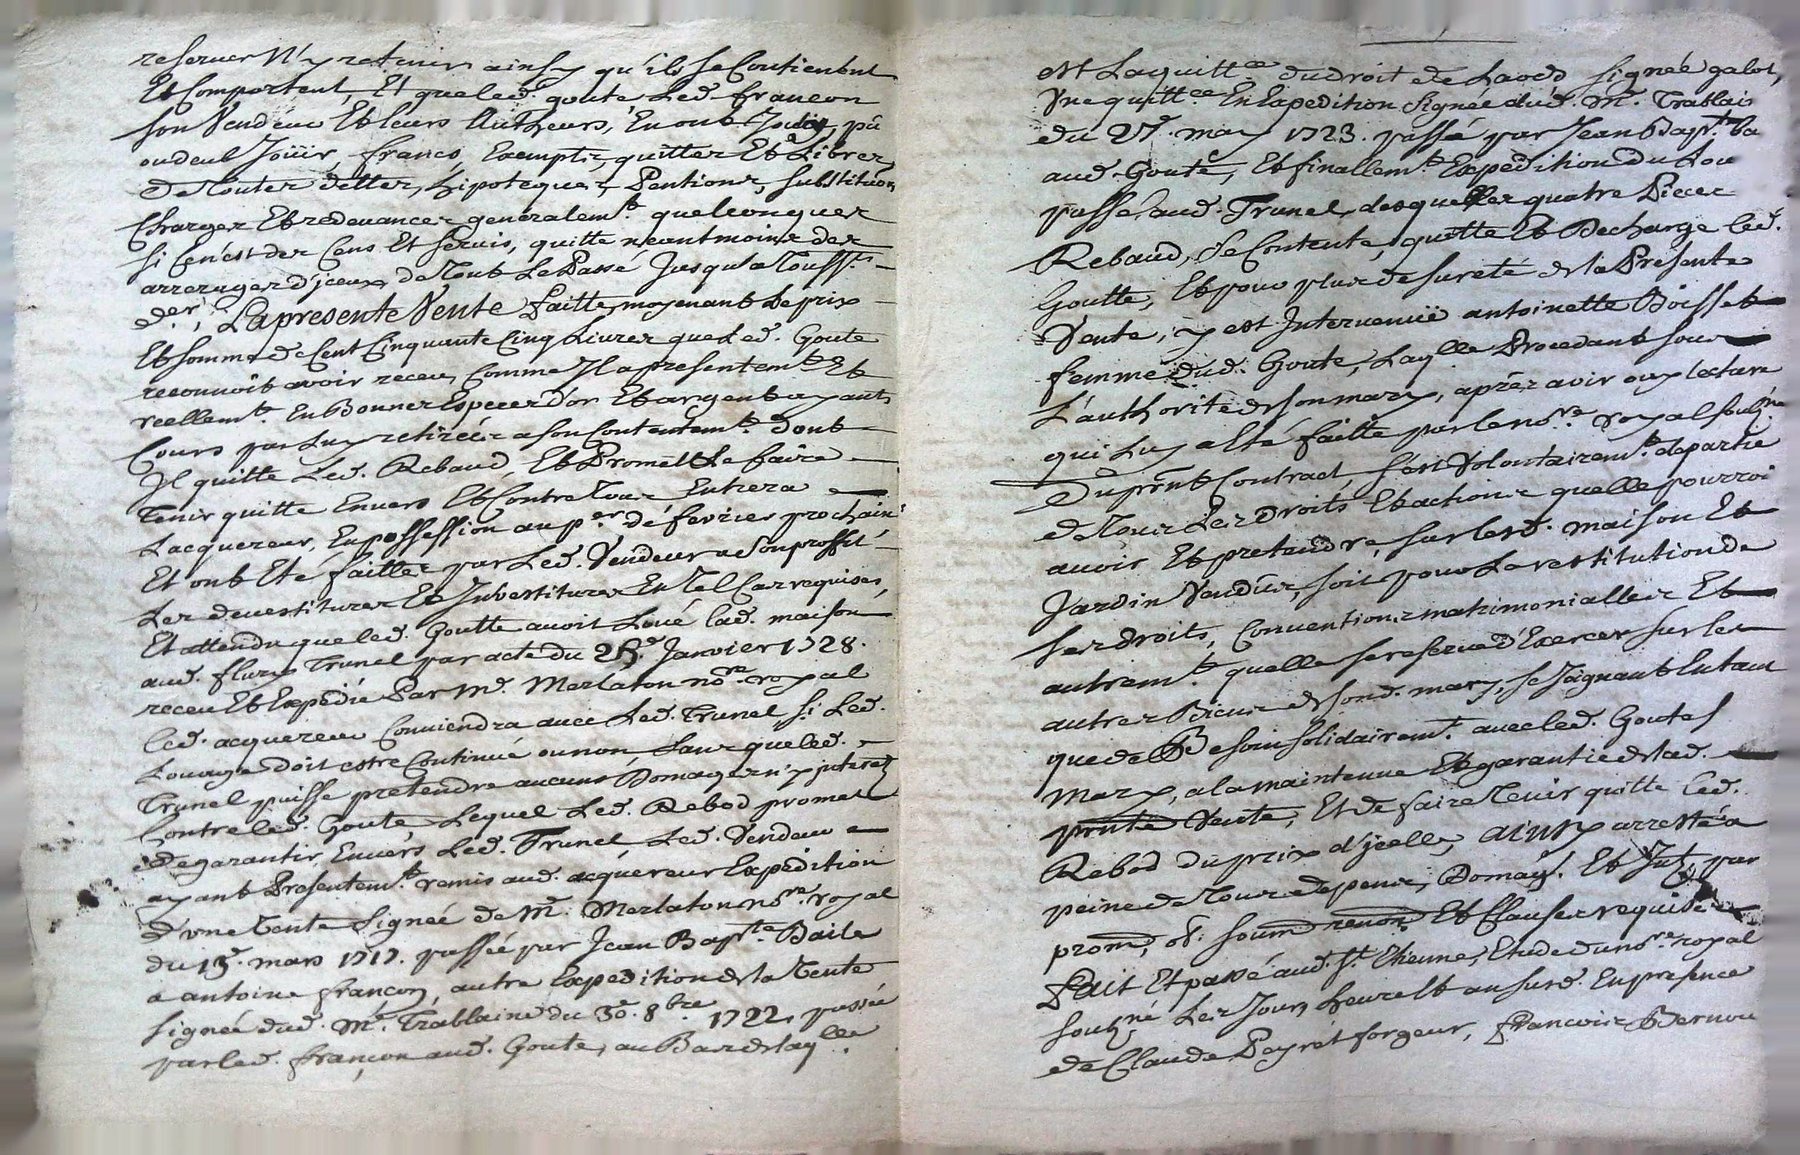 reserver N'y retenir ainsy qu'ils se Contienent
Et Comportent, Et que led. goute Led. françon
son Vendeur Et leurs Autheurs, En ont Jouy, pû
ou deub Joüir, francs, Exempts, quittes Et Libres
de Toutes dettes, hipoteques, Pentions, substituõn
Charges Et redevances generalemt. quelconques
si cen'est des Cens Et servis, quitte neantmoins des
arrerages d'jceux de Tout Le Passé Jusqu'a Touss.ts
der., La presente Vente faitte moyenant Le prix
Et somme de Cent Cinquante Cinq Livres que Led. Goute
reconnoit avoir receu, Comme Jl a presentemt. Et
reellemt. En Bonnes Especes d'or Et argent ayant
Cours par Luy retirées a son Contentemt. Dont
Jl quitte Led. Rebaud, Et Promet Le faire
Tenir quitte Envers Et Contre Tous Entrera
L'acquereur, En possession au per. de fevrier prochain
Et ont Eté faittes par Led. Vendeur a son proffit
Les devestitures Et Jnvestitures En Tel Cas requises,
Et attendu que led. Goutte avoit Loué lad. maison
aud. fleury Trunel par acte du 25e. Janvier 1728.
receu Et Expedié Par Me. Merlaton nore. royal
led. acquereur Conviendra avec Led. Trunel si Led.
Louage doit estre Continué ou non, sans que led.
Trunel puisse pretendre aucuns Domages n'y jnterets
Contre led. Goute Lequel Led. Rebod promet
de garantir Envers Led. Trunel, Led. Vendeur
ayant Presentemt. remis aud. acquereur Expedition
d'une Vente signée de Me. Merlaton nore. royal
du 15e. mars 1717. passée par Jean Bapte. Baile
a antoine françon, autre Expedition de la Vente
signée dud. Me. Trablaine du 30e. 8bre 1722, passée
par led. françon aud. Goute, au Bas de laqlle.
est La quittce du droit de Laods signée galot,
Une quittce En Expedition signée dud. Me. Trablais
du 27e. may 1723. passé par Jean Bapt. Ba
aud. Goute, Et finallemt. Expedition du Lou
passé aud. Trunel, desquelles quatre Pieces
Rebaud, se Contente, quitte Et Decharge led.
Goutte, Et pour plus de sureté de la Presente
Vente, y est Jntervenüe antoinette Boisset
femme dud. Goute, Laqlle Procedant sous
L'authorité de son mary, aprês avoir ouy lecture
qui Luy a Eté faitte par le nore. royal soubzné
Du prnt Contract, s'est Volontairemt. departie
de Tous Les Droits Et actions quelle pourroi
avoir Et pretandre, sur lesd. maison Et
Jardin Vendus, soit pour La restitution de
ses droits, Conventions matrimonialles Et
autremt. quelle se reserve d'Exercer sur les
autres Biens de sond. mary, se Joignant En tant
que de Besoin solidairemt. avec led. Goute s
Mary, a la maintenue Et garantie de lad.
prnte Vente, Et de faire Tenir quitte led.
Rebod du prix d'jcelle, ainsy arresté a
peine de Tous depens, Domag. Et Jntz, par
prom, ob. soum renon Et Clauses requises
Fait Et passé aud. St. Etienne, Etude du nore. royal
soubzné Les Jour, heure Et an susd. En presence
de Claude Peyret forgeur, françois Bernou